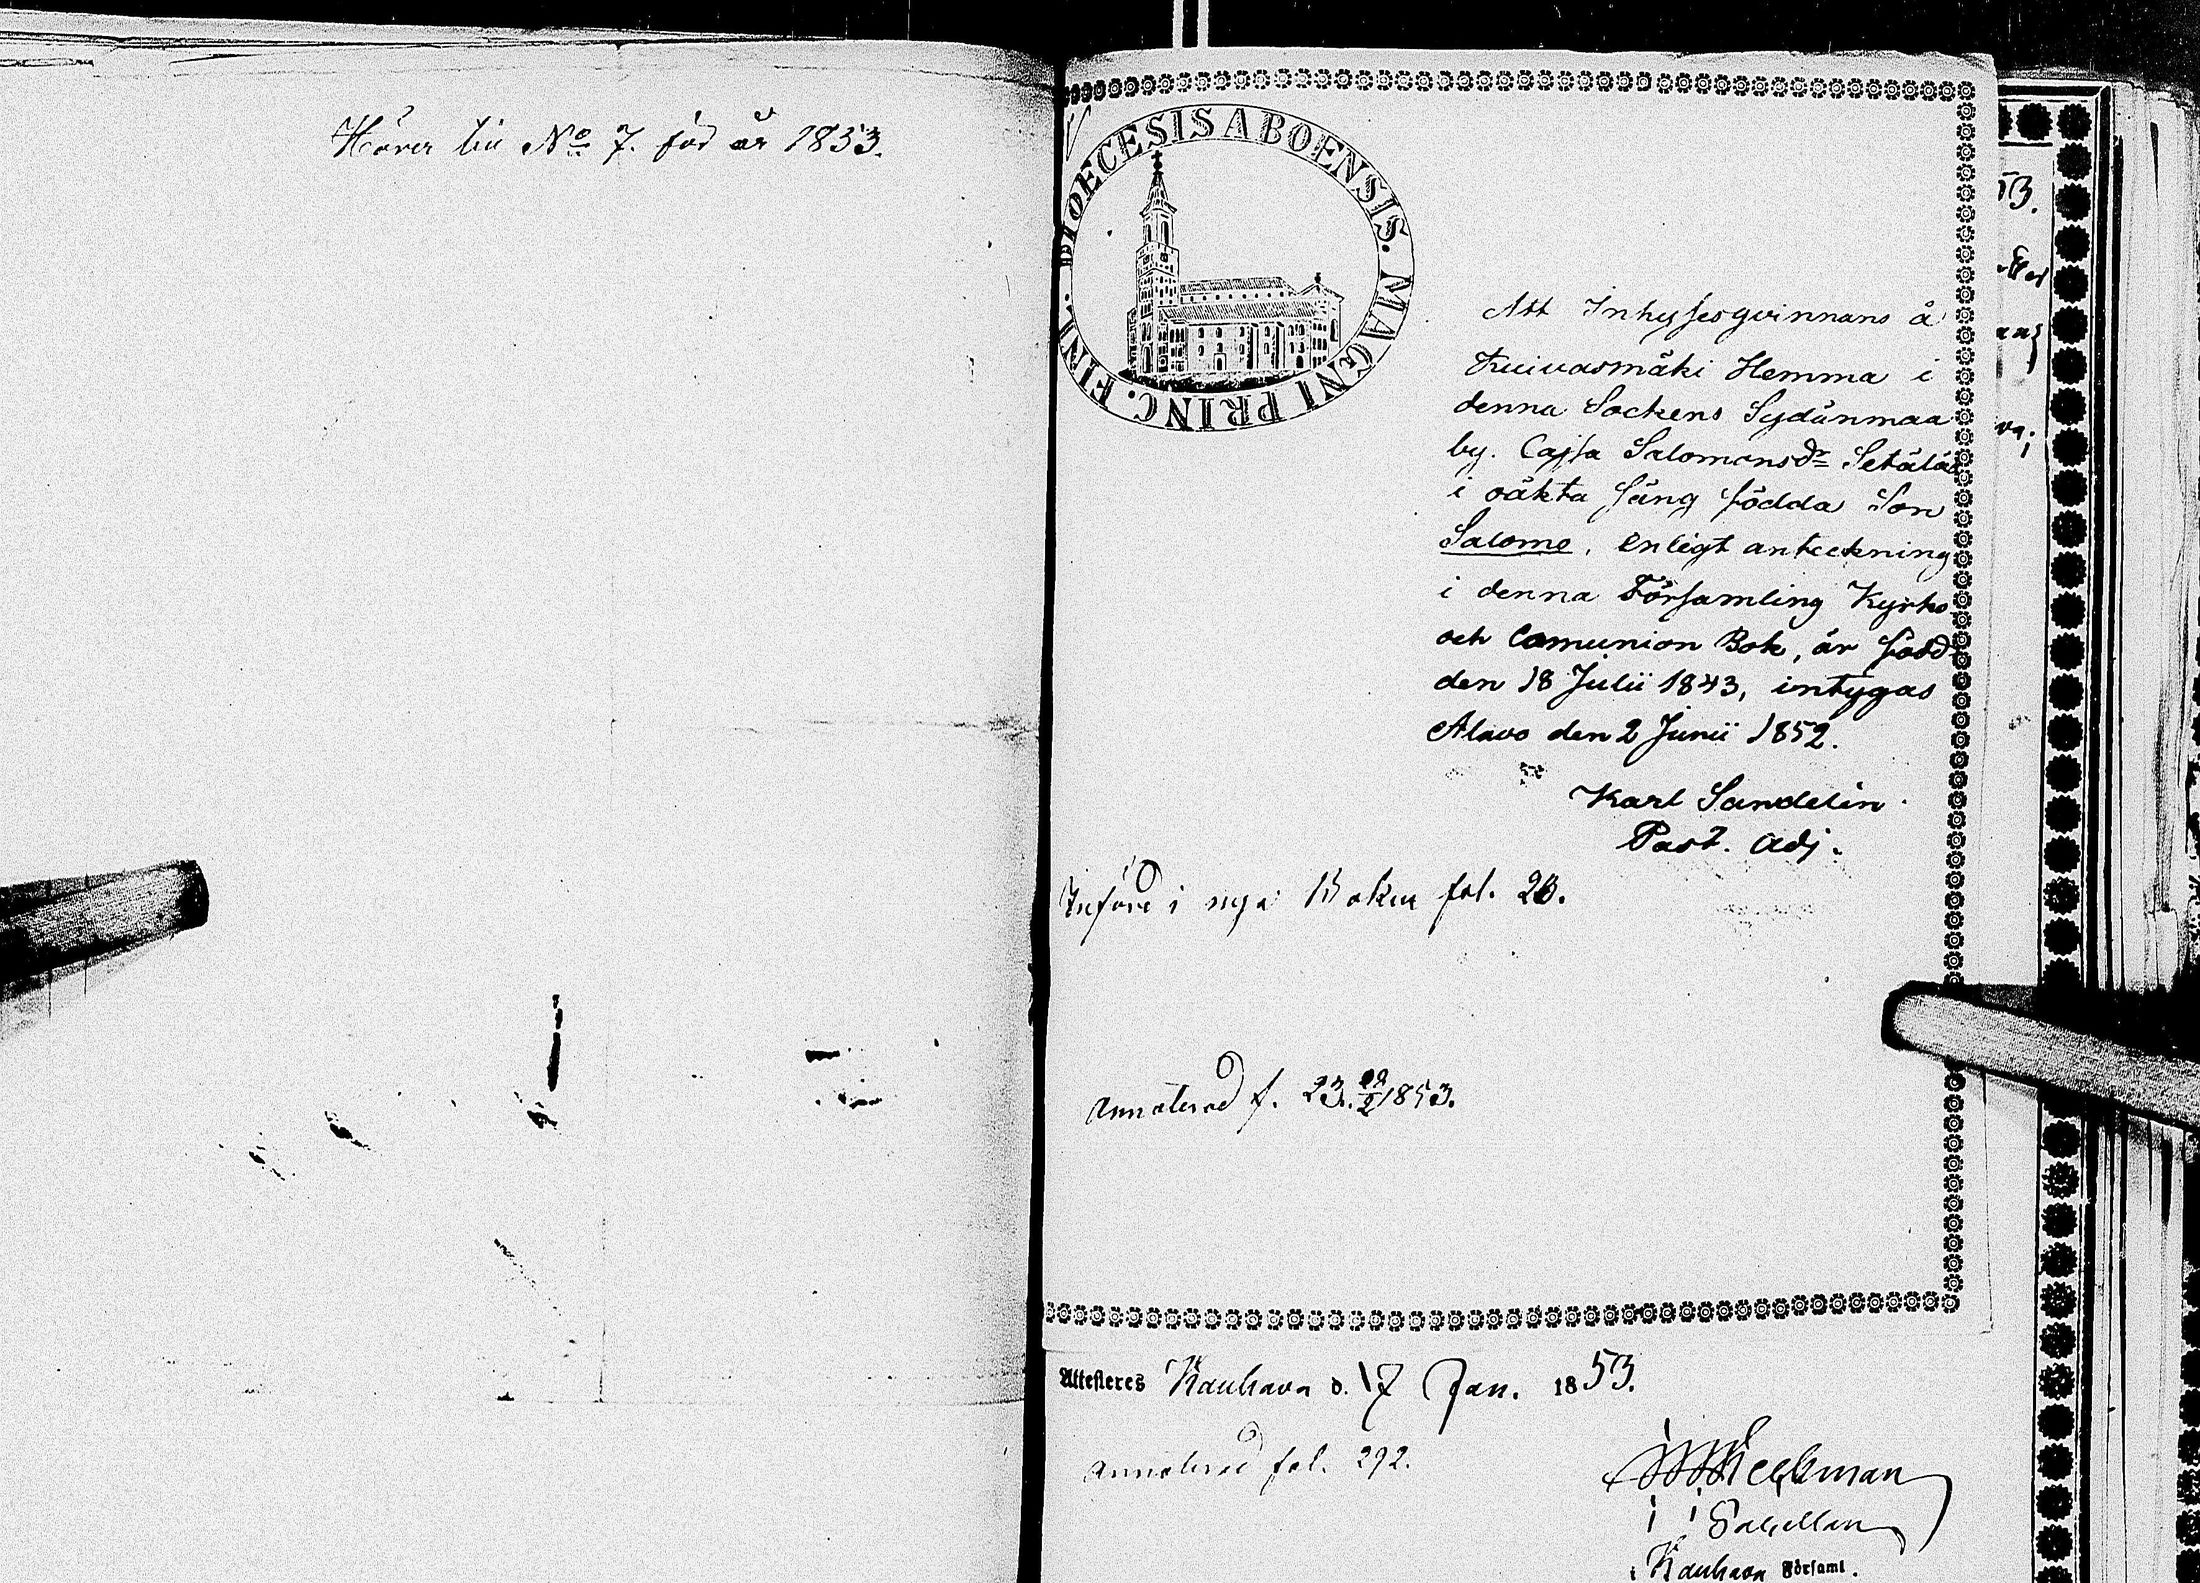 Hörer till No 7. för år 1853.
DIOECESIS ABOENSIS. MAGNI PRINC. FINL.
Att Inhysesqvinnans å
Kuivasmäki Hemma i
denna Sockens Sydänmaa
by. Cajsa Salomonsdr Setäläs
i oäkta säng födda Son
Salomo, enligt anteckning
i denna Församling Kyrko
och Comunion Bok, är född
den 18 Julii 1843, intygas
Alavo den 2 Junii 1852.
Karl Sandelin
Past. adj.
Införd i nya Boken fol. 23.
Annoterad f. 23. 22/2 1853.
Attesteres Kauhava d. 17 Jan. 1853.
Annoterad fol. 292.
Kapellan
Kauhava Församl.
53.